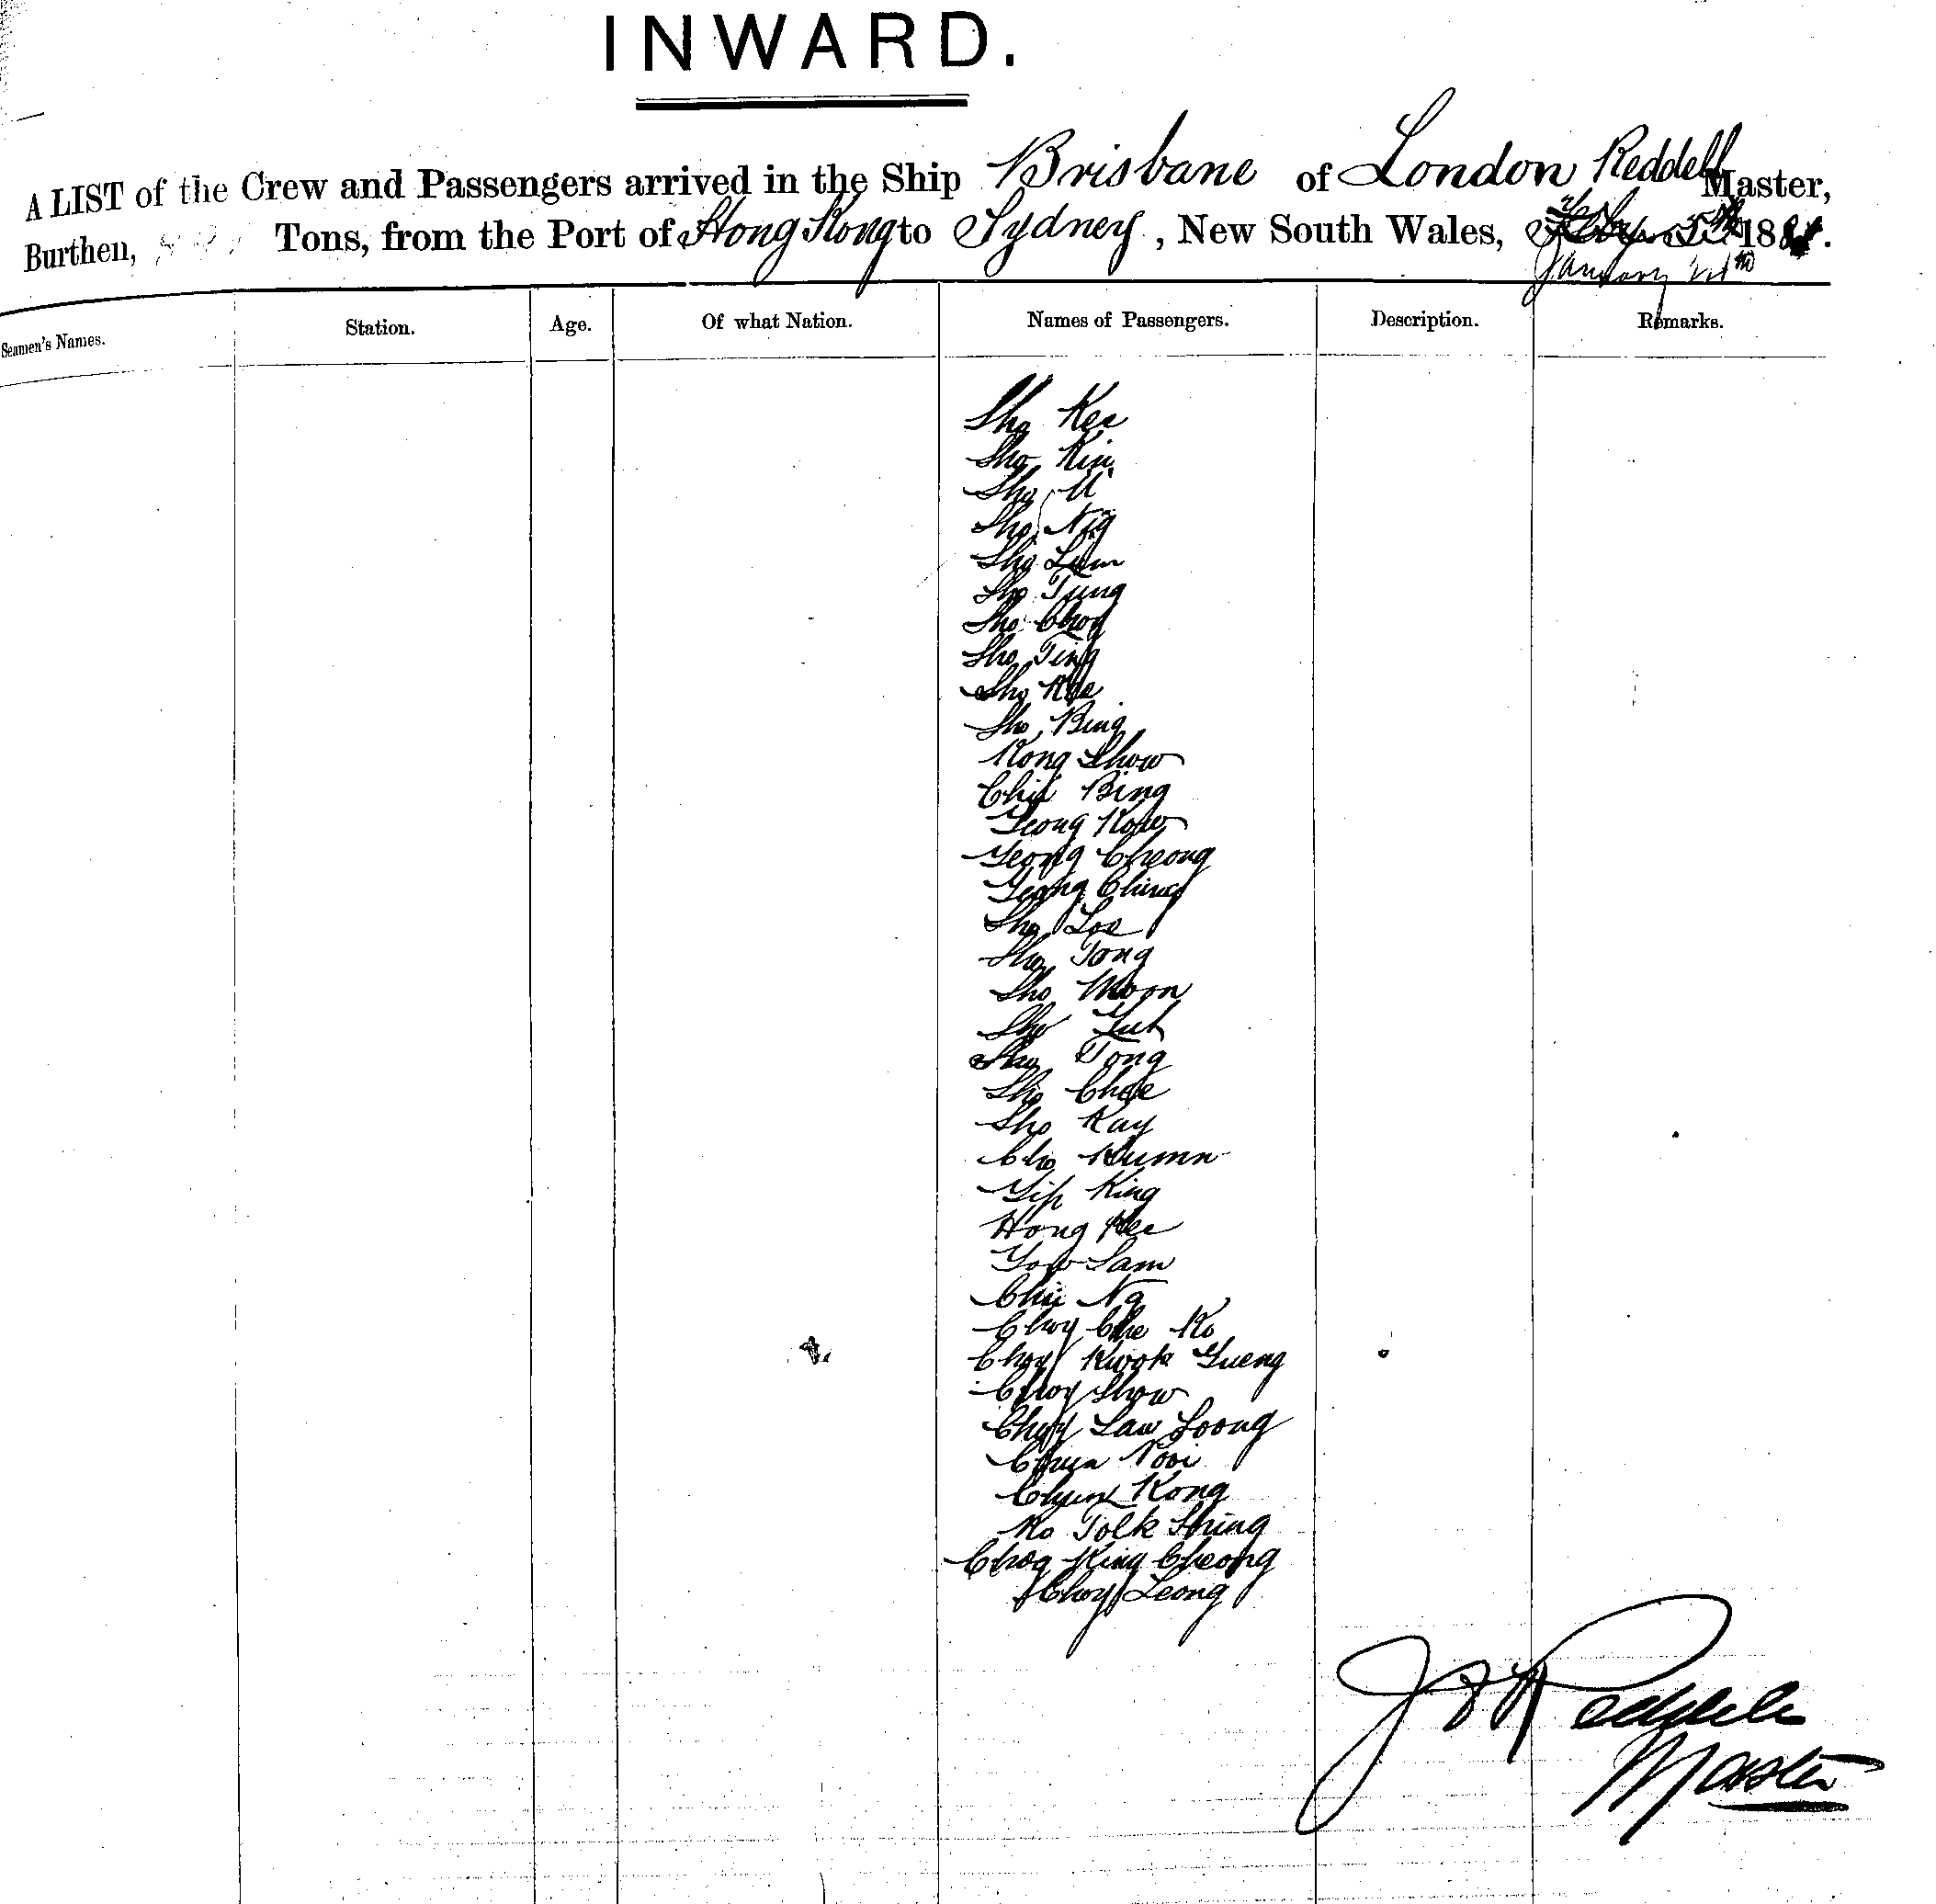 INWARD.
A LIST of the Crew and Passengers arrived in the Ship Brisbane of London Reddell Master,
Burthen, Tons, from the Port of Hong Kong to Sydney, New South Wales, 188
January
Seamen's Names. Station. Age. Of what Nation. Names of Passengers. Description. Remarks.
Sho Kee
Sho Kin
Sho U
Sho Nig
Sho Lum
Sho Tung
Sho Choy
Sho Ting
Sho Kee
Sho Bing
Kong Show
Chie Bing
Yeong Kow
Yeong Cheong
Yeong Ching
Sho Loe
Sho Tong
Sho Moon
Sho
Sho Tong
Sho Choe
Sho Kay
Cho
Yip King
Hong Kee
Yow Sam
Chii Ng
Choy Che Ko
Choy Kwok Yueng
Choy Show
Choy Law Loong
Nooi
Kong
Ko Tolk Shing
Choy King Cheong
Choy Leong
Reddell
Master